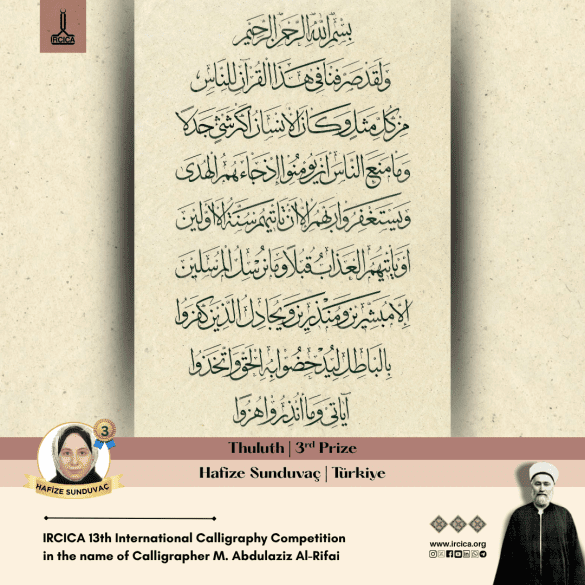 IRCICA
بسم الله الرحمن الرحيم
ولقد صرفنا في هذا القرآن للناس
من كل مثل وكان الإنسان أكثر شيء جدلا
وما منع الناس أن يؤمنوا إذ جاءهم الهدى
ويستغفروا ربهم إلا أن تأتيهم سنة الأولين
أو يأتيهم العذاب قبلا وما نرسل المرسلين
إلا مبشرين ومنذرين ويجادل الذين كفروا
بالباطل ليدحضوا به الحق واتخذوا
آياتي وما أنذروا هزوا
3
HAFİZE SUNDUVAÇ
Thuluth | 3rd Prize
Hafize Sunduvaç | Türkiye
IRCICA 13th International Calligraphy Competition
in the name of Calligrapher M. Abdulaziz Al-Rifai
www.ircica.org